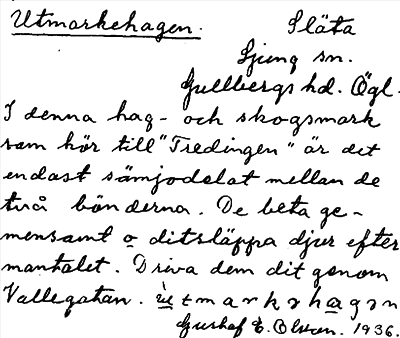 Utmarkehagen. Släta
Ljung sn.
Gullbergs hd. Ögl.
I denna hag- och skogsmark
som hör till "Tredingen" är det
endast sämjodelat mellan de
två bönderna. De beta ge-
mensamt o ditsläppa djur efter
mantalet. Driva dem dit genom
Vallegatan. ùtmarkəhagən
Gustaf E. Olsson. 1936.